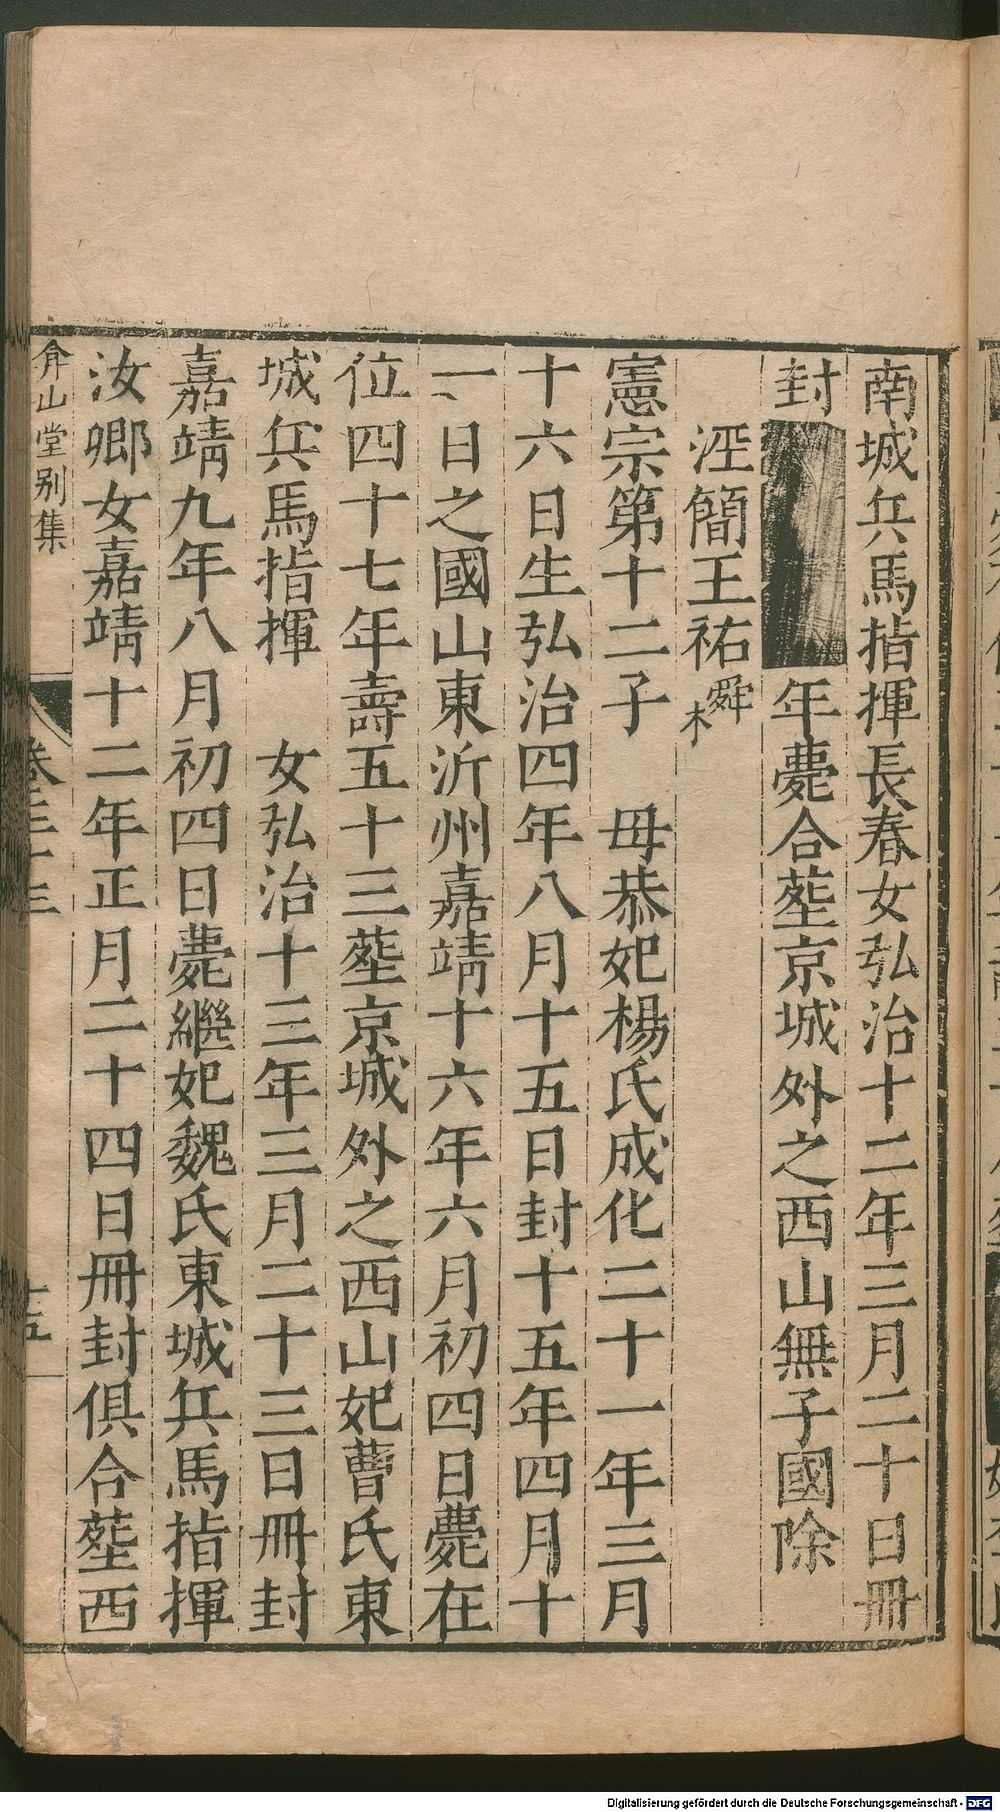 南城兵馬指揮長春女弘治十二年三月二十日冊
封 年薨合塟京城外之西山無子國除
涇簡王祐 舜木
憲宗第十二子 母恭妃楊氏成化二十一年三月
十六日生弘治四年八月十五日封十五年四月十
一日之國山東沂州嘉靖十六年六月初四日薨在
位四十七年壽五十三塟京城外之西山妃曹氏東
城兵馬指揮 女弘治十三年三月二十三日冊封
嘉靖九年八月初四日薨繼妃魏氏東城兵馬指揮
汝卿女嘉靖十二年正月二十四日冊封俱合塟西
弇山堂别集 卷三十三 十五
Digitalisierung gefördert durch die Deutsche Forschungsgemeinschaft - DFG